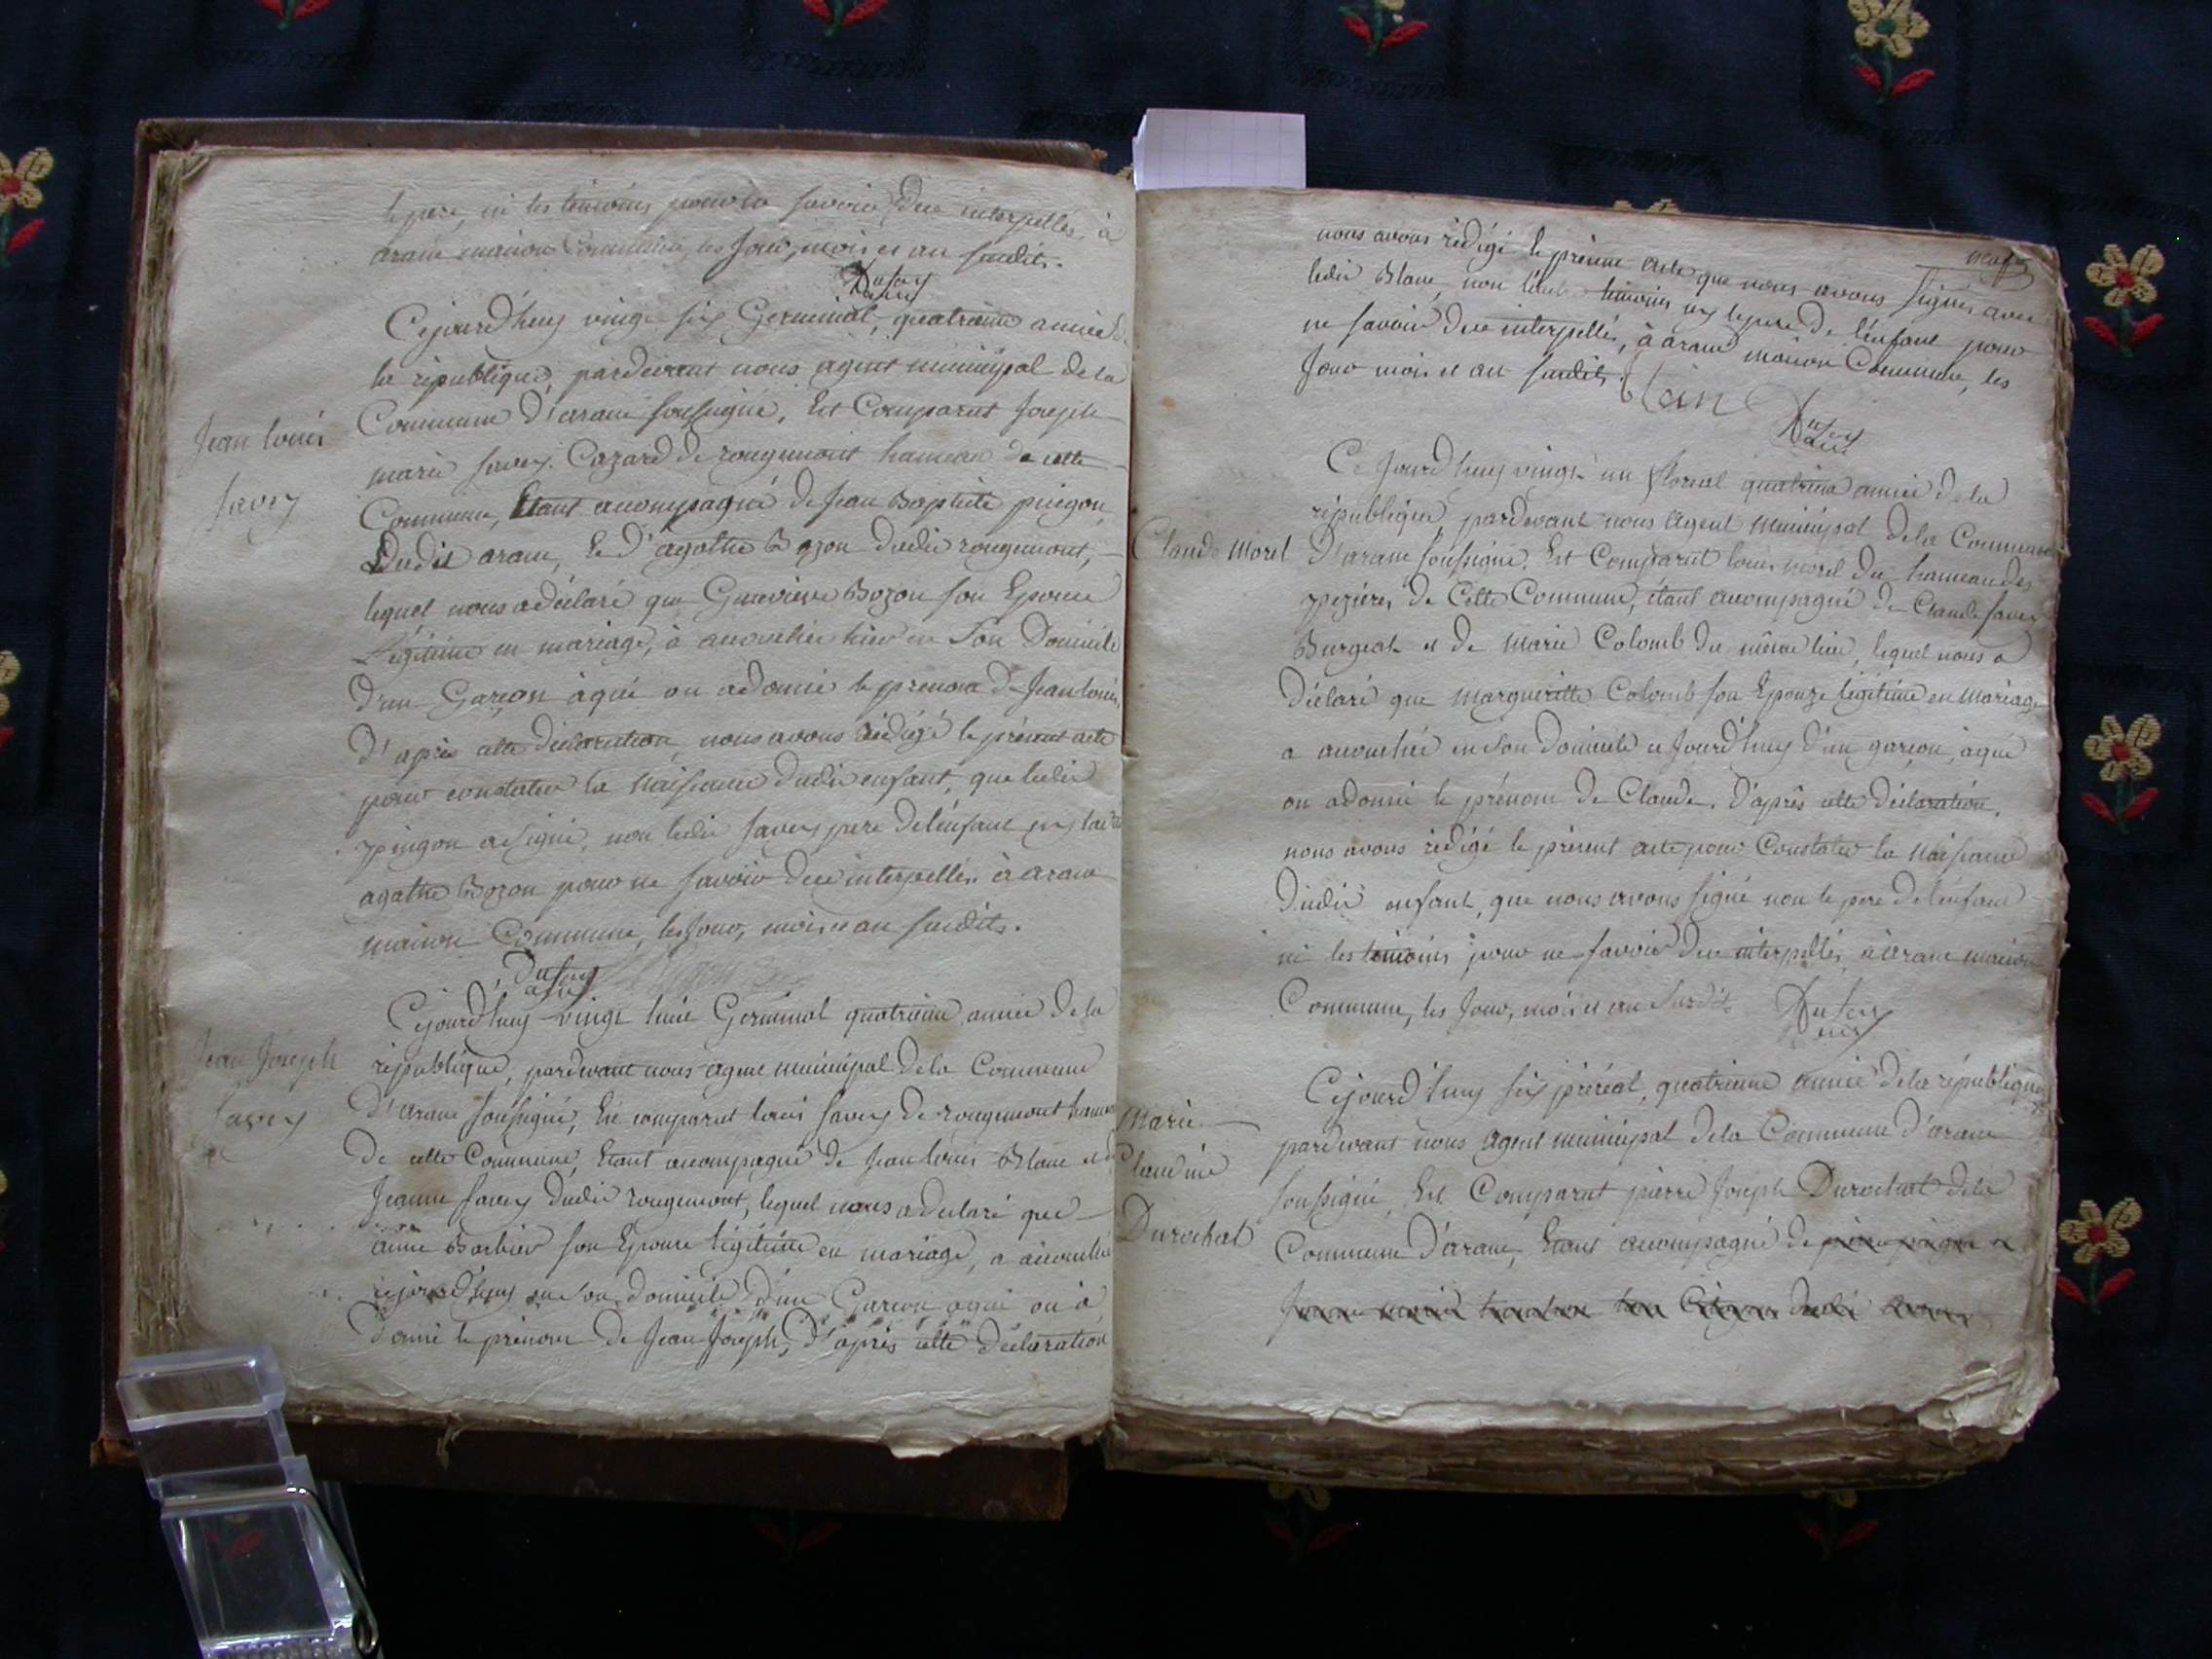 le pere, ni les temoins pour ne savoir Due interpellés, à
arane maison Commune, les Jour, mois et an susdits.
Dufey
Cejourd'huy vingt six Germinal, quatrieme année de
la république, pardevant nous agent municipal de la
Commune d'arane soussigné, Est Comparut Joseph
Jean Louis
Savey
marie Savey Cazard de rougemont hameau de cette
Commune, Etant acompagné de Jean Baptiste pingon
Dudit arane, & D'agathe Bozon dudit rougemont,
lequel nous a déclaré que Genevieve Bozon son Epouse
légitime en mariage, à acouchée hier en Son Domicile
D'un Garçon àqui on a donné le prenom de Jean louis,
D'après cette Déclaration, nous avons rédigé le présent acte
pour constater la Naissance dudit enfant, que ledit
pingon a signé, non ledit Savey pere de l'enfant ny ladite
agathe Bozon pour ne savoir Due interpellés. à arane
maison Commune, les Jour, mois et an susdits.
Dufey
Cejourd'huy vingt huit Germinal quatrieme année de la
Jean Joseph
Savey
république, pardevant nous agent municipal de la Commune
D'arane soussigné, Est comparut louis Savey de rougemont hameau
de cette Commune, Etant acompagné de Jean louis Blanc et de
Jeanne Savey dudit rougemont, lequel nous a declaré que
aime Barbier son Epouse légitime en mariage, a acouchée
cejourd'huy en son domicile d'un Garçon aqui on à
donné le prénom de Jean Joseph, D'après cette déclaration
neuf
nous avons rédigé le présent acte que nous avons signés avec
ledit Blanc, non l'autre témoins ny le pere de l'enfant pour
ne savoir Due interpellés, à arane maison Commune, les
Jour mois et an susdits.
blan
Dufey
Ce Jourd'huy vingt un floreal quatrieme année de la
république, pardevant nous Agent Municipal de la Commune
Claude Morel
D'arane soussigné. Est Comparut louis morel du hameau des
pezieres de Cette Commune, étant acompagné de Claude Savey
Burgeat et de Marie Colomb du même lieu, lequel nous a
Déclaré que Margueritte Colomb son Epouze légitime en Mariage
a acouchée en son Domicile ce Jourd'huy d'un garçon, aqui
on a donné le prénom de Claude, D'après cette déclaration,
nous avons rédigé le présent acte pour Constater la Naissance
Dudit enfant, que nous avons signé non le pere de l'enfant
ni les temoins pour ne savoir Due interpellés, à arane maison
Commune, les Jour, mois et an Susdits
Dufey
Cejourd'huy six prérial, quatrieme année de la république
Marie
Claudine
Durochat
pardevant nous Agent municipal de la Commune d'arane
soussigné, Est Comparut pierre Joseph Durochat de la
Commune D'arane, Etant acompagné de